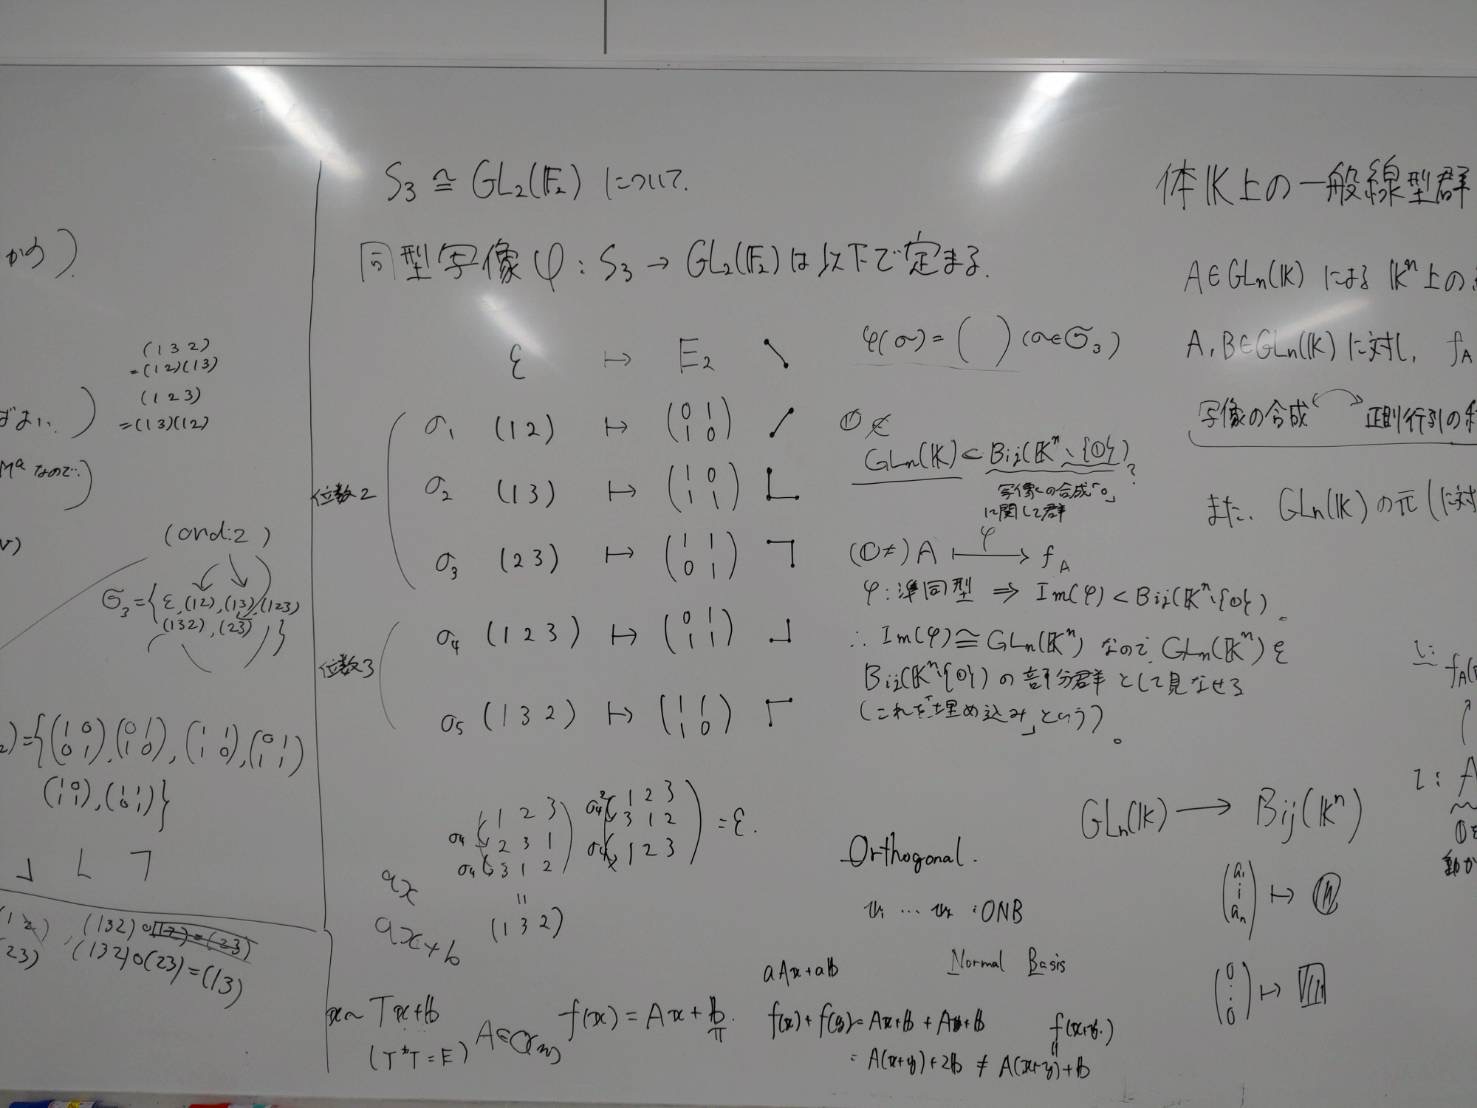 かめ)
(1 3 2)
=(1 2)(1 3)
(1 2 3)
=(1 3)(1 2)
なので.
(ord:2)
𝔖₃={ε,(12),(13),(123)
(132),(23)}
)={(1 0
0 1),(0 1
1 0),(1 1
1 0),(0 1
1 1)
(1 0
1 1),(1 1
0 1)}
(132)∘(23)=(13)
S₃ ≅ GL₂(𝔽₂) について.
同型写像 φ : S₃ → GL₂(𝔽₂) は以下で定まる.
ε ↦ E₂
位数2
σ₁ (1 2) ↦ (0 1
1 0)
σ₂ (1 3) ↦ (1 0
1 1)
σ₃ (2 3) ↦ (1 1
0 1)
位数3
σ₄ (1 2 3) ↦ (0 1
1 1)
σ₅ (1 3 2) ↦ (1 1
1 0)
σ₄ (1 2 3
2 3 1
σ₄ 3 1 2)
σ₄² (1 2 3
3 1 2
1 2 3) = ε.
॥
(1 3 2)
ax
ax+b
x~Tx+b
(TᵗT=E)
f(x)=Ax+b.
φ(σ)=( ) (σ∈𝔖₃)
GLₙ(𝕂)<Bij(𝕂ⁿ\{𝟘})?
写像の合成「∘」
に関して群
(𝟘≠)A ↦ f_A
φ
φ:準同型 ⇒ Im(φ)<Bij(𝕂ⁿ\{𝟘}).
∴ Im(φ)≅GLₙ(𝕂ⁿ) なので, GLₙ(𝕂ⁿ)を
Bij(𝕂ⁿ\{𝟘})の部分群として見なせる
(これを「埋め込み」という)。
GLₙ(𝕂) → Bij(𝕂ⁿ)
Orthogonal.
:ONB
Normal Basis
aAx+ab
f(x)+f(y)=Ax+b+Ay+b
=A(x+y)+2b≠A(x+y)+b
f(x+y.)
॥
(a₁
⋮
aₙ) ↦
(0
⋮
0) ↦
体𝕂上の一般線型群
A∈GLₙ(𝕂) による 𝕂ⁿ上の
A,B∈GLₙ(𝕂)に対し, f_A
写像の合成 正則行列の
また, GLₙ(𝕂)の元(に対
f_A(
: A
動か